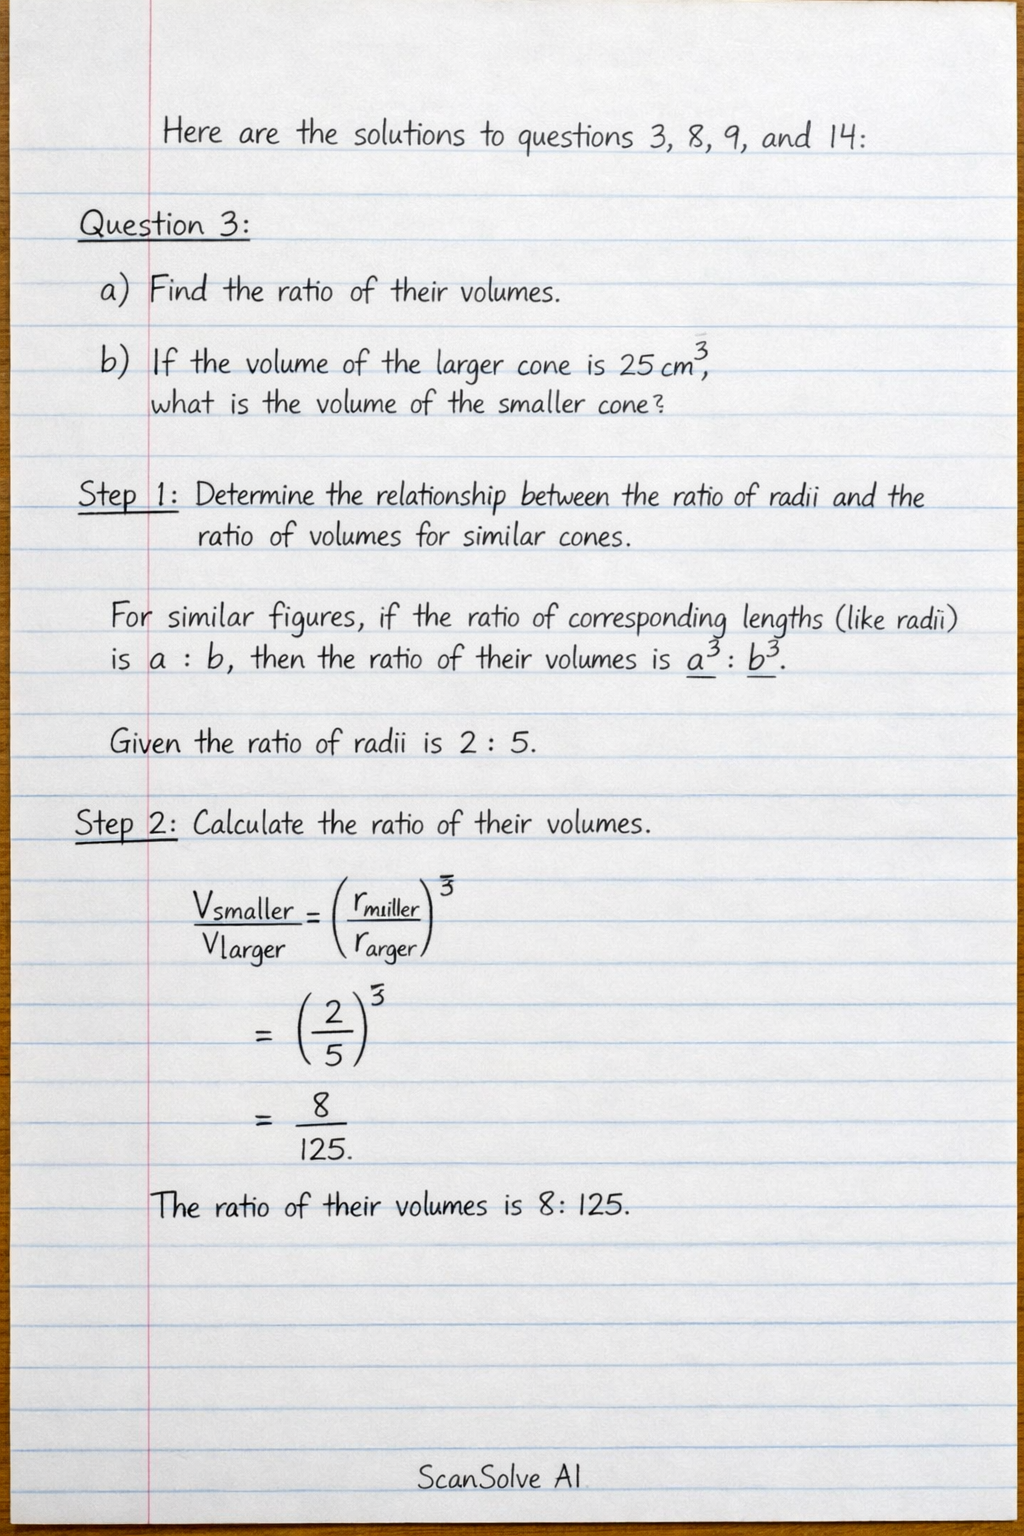 Here are the solutions to questions 3, 8, 9, and 14:
Question 3:
a) Find the ratio of their volumes.
b) If the volume of the larger cone is 25 cm³,
what is the volume of the smaller cone?
Step 1: Determine the relationship between the ratio of radii and the
ratio of volumes for similar cones.
For similar figures, if the ratio of corresponding lengths (like radii)
is a : b, then the ratio of their volumes is a³ : b³.
Given the ratio of radii is 2 : 5.
Step 2: Calculate the ratio of their volumes.
Vsmaller / Vlarger = (rmuiller / rarger)³
= (2 / 5)³
= 8 / 125.
The ratio of their volumes is 8 : 125.
ScanSolve AI